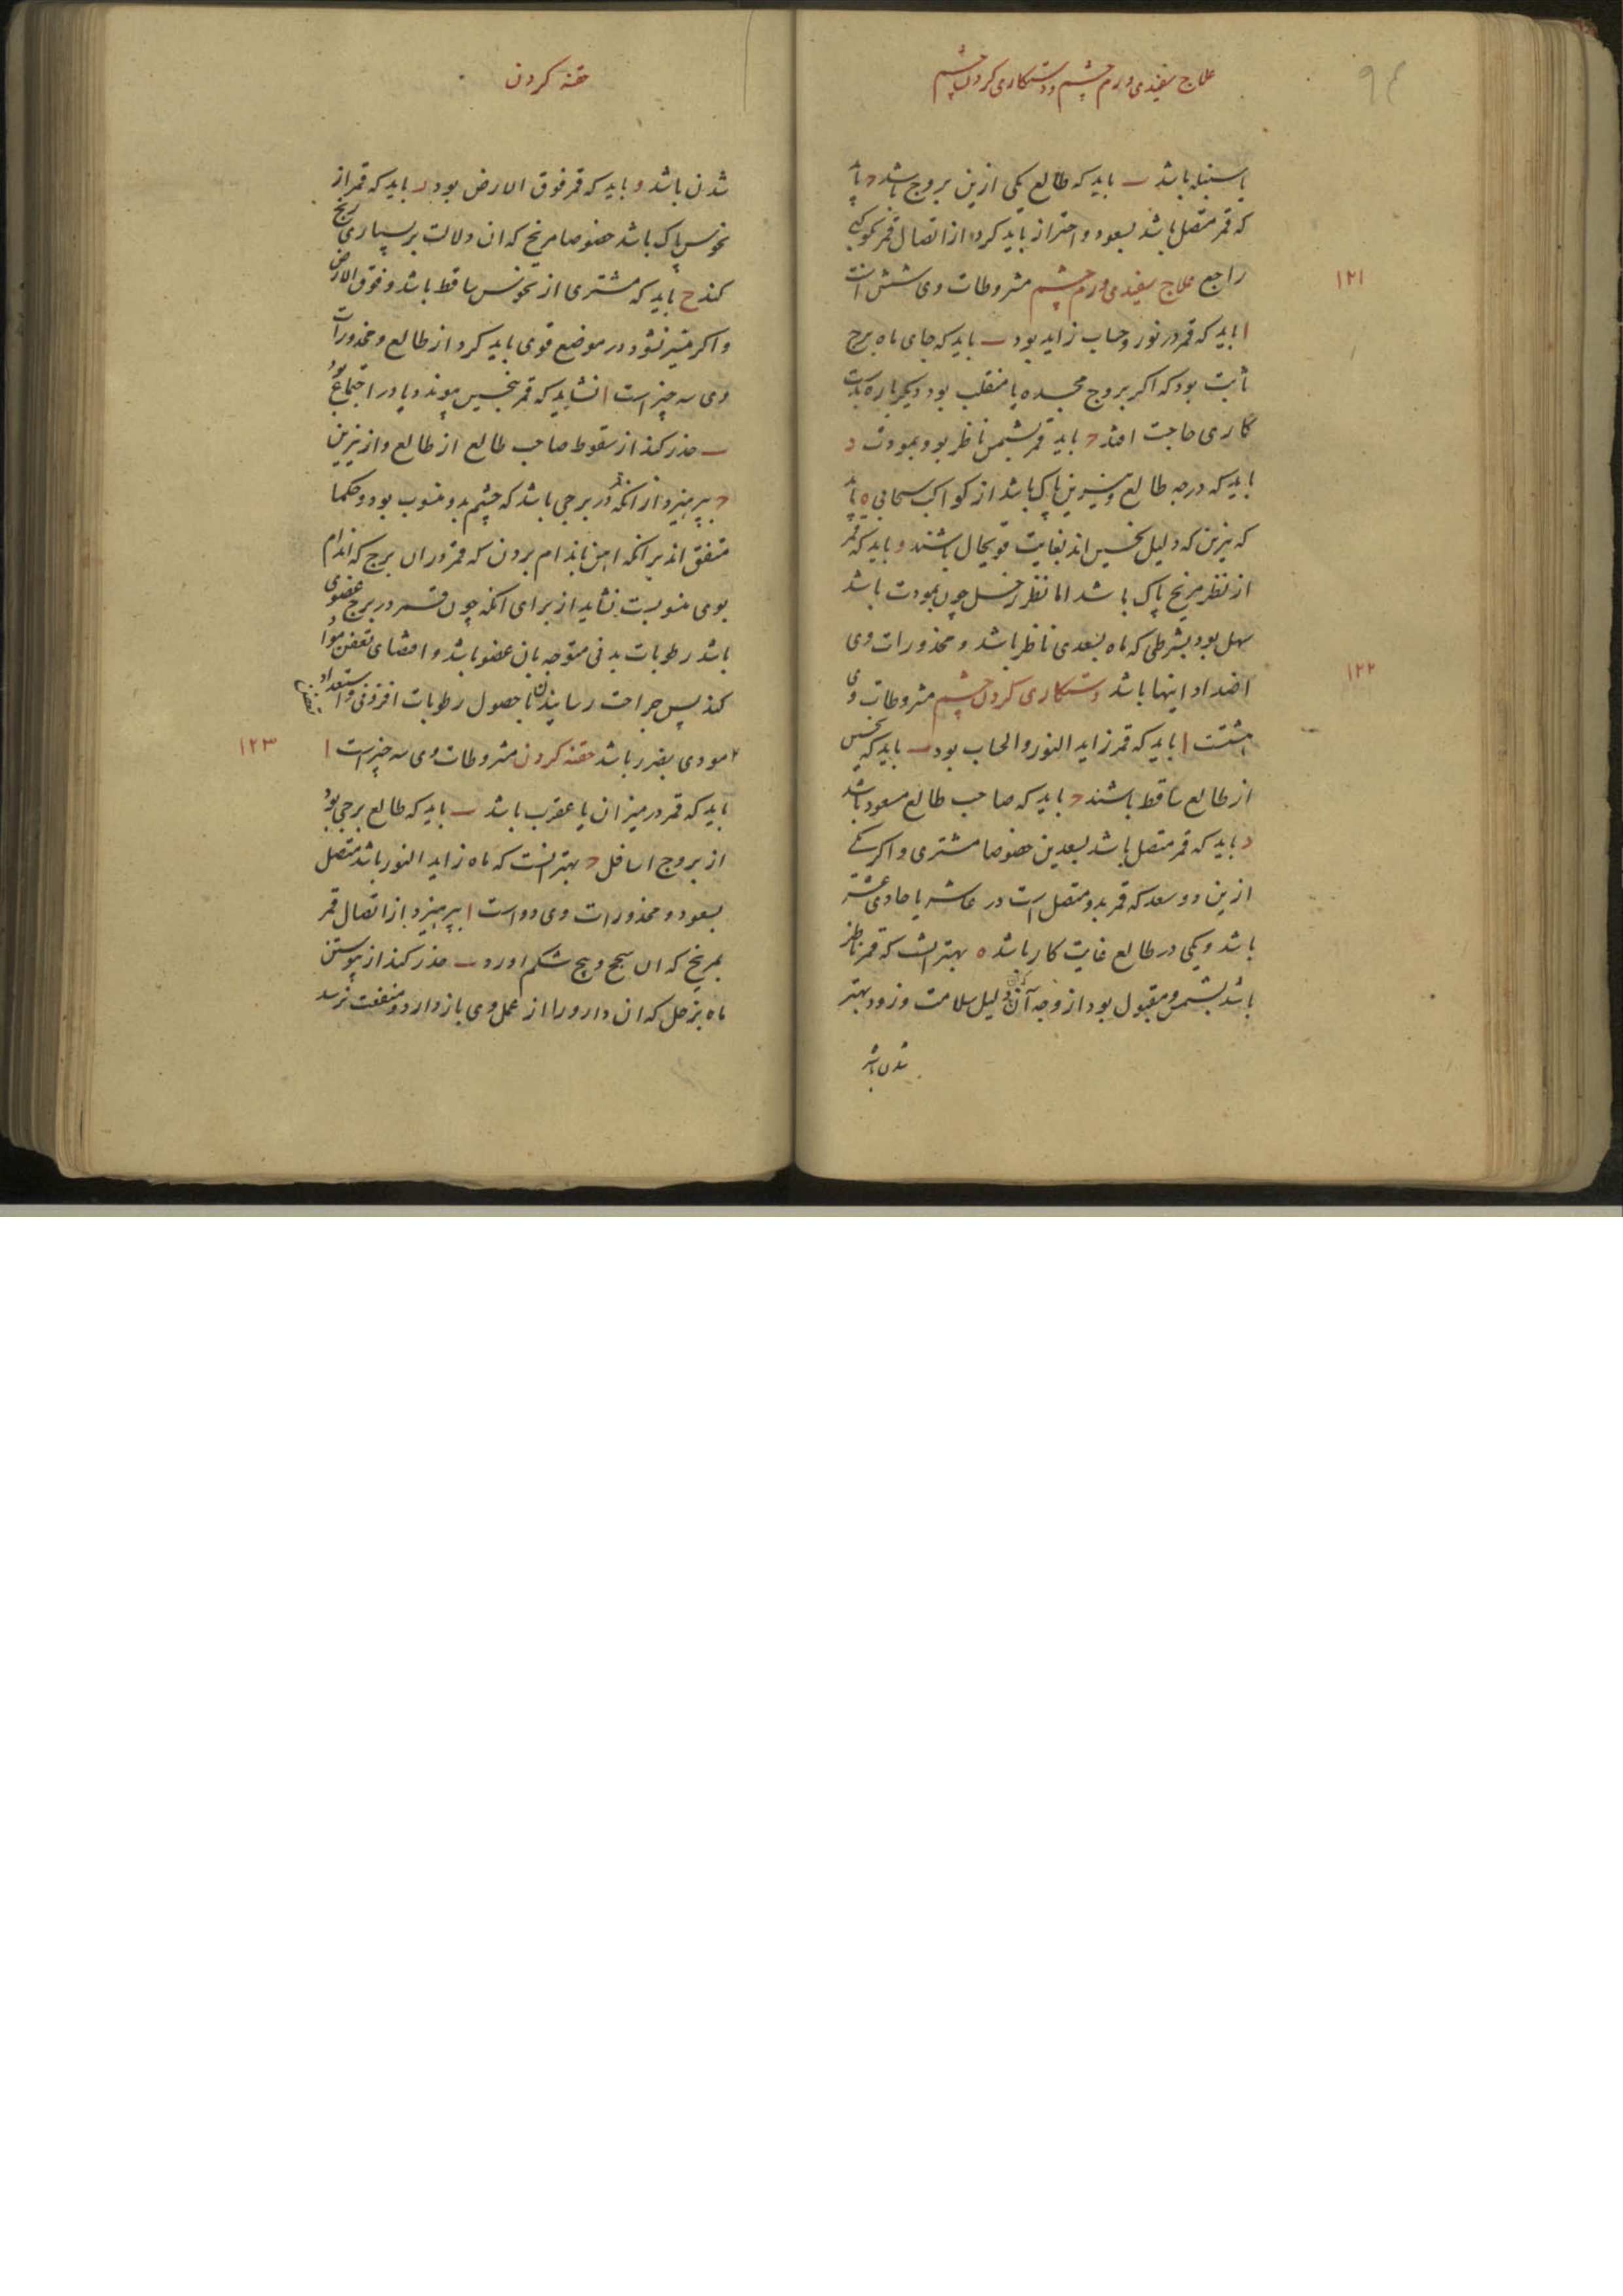 علاج سفیدی و رم چشم و دستکاری کردن چشم
۹۴
یا سنبله باشد ب باید که طالع یکی ازین بروج باشد ج باید
که قمر متصل باشد بسعود و احتراز باید کرد از اتصال قمر بکوکبی
راجع علاج سفیدی و رم چشم مشروطات وی شش است
۱۲۱
ا باید که قمر در نور و حساب زاید بود ب باید که جای ماه برج
ثابت بود که اکر بروج مجسده یا منقلب بود دیکر باره بدست
کاری حاجت افتد ج باید قمر بشمس ناظر بود بمودت د
باید که درجه طالع و نیرین پاک باشد از کواکب سحابی ه باید
که نیرین که دلیل نحسین اند بغایت قویحال باشند و باید که قمر
از نظر مریخ پاک باشد اما نظر زحل چون بمودت باشد
سهل بود بشرطی که ماه بسعدی ناظر باشد و محذورات وی
اضداد اینها باشد دستکاری کردن چشم مشروطات وی
۱۲۲
هشتت ا باید که قمر زاید النور والحساب بود ب باید که نحسین
از طالع ساقط باشند ج باید که صاحب طالع مسعود باشد
د باید که قمر متصل باشد بسعدین خصوصا مشتری و اکر یکی
ازین دو سعد که قمر بدو متصل است در عاشر یا حادی عشر
باشد و یکی در طالع غایت کار باشد ه بهتر انست که قمر ناظر
باشد بشمس و مقبول بود از وجه آن که آن دلیل سلامت و زود بهتر
شدن باشد
حقنه کردن
شدن باشد و باید که قمر فوق الارض بود ز باید که قمر از
نحوس پاک باشد خصوصا مریخ که ان دلالت بر بسیاری رنج
کند ح باید که مشتری از نحوس ساقط باشد و فوق الارض
و اکر میسر نشود در موضع قوی باید کرد از طالع و محذورات
وی سه چیز است ا نشاید که قمر بنحسین پیوندد یا در اجتماع بود
ب حذر کند از سقوط صاحب طالع از طالع و از نیرین
ج بپرهیزد از انکه قمر در برجی باشد که چشم بدو منسوب بود و حکما
متفق اند بر انکه اهن باندام بردن که قمر در ان برج که اندام
بوی منسوبست نشاید از برای انکه چون قمر در برج عضوی
باشد رطوبات بدنی متوجه بان عضو باشد و اقتضای تعفن مواد
کند پس جراحت رسانیدن با حصول رطوبات افزونی و استعداد
مودی بضرر باشد حقنه کردن مشروطات وی سه چیز است ا
۱۲۳
باید که قمر در میزان یا عقرب باشد ب باید که طالع برجی بود
از بروج اسافل ج بهتر انست که ماه زاید النور باشد متصل
بسعود و محذورات وی دو است ا بپرهیزد از اتصال قمر
بمریخ که ان سجح و پیچ شکم اورد ب حذر کند از پیوستن
ماه بزحل که ان دارو را از عمل وی باز دارد و منفعت نرسد